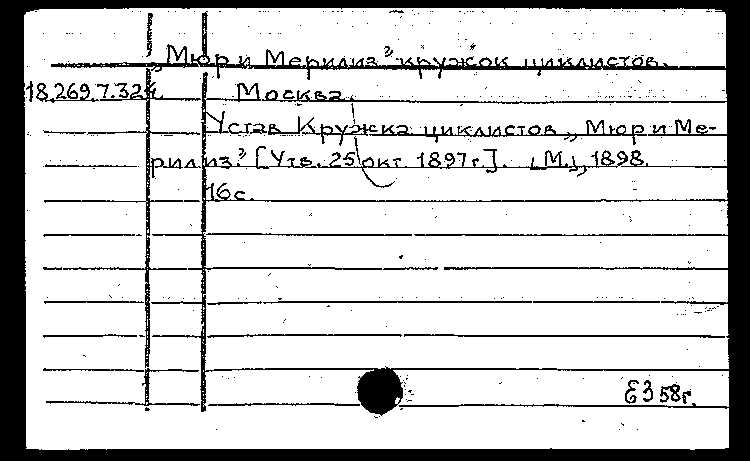 „Мюр и Мерилиз" кружок циклистов.
18.269.7.324. Москва.
Устав Кружка циклистов „Мюр и Ме-
рилиз." [Утв. 25 окт. 1897 г.]. [М.], 1898.
16 с.
58г.